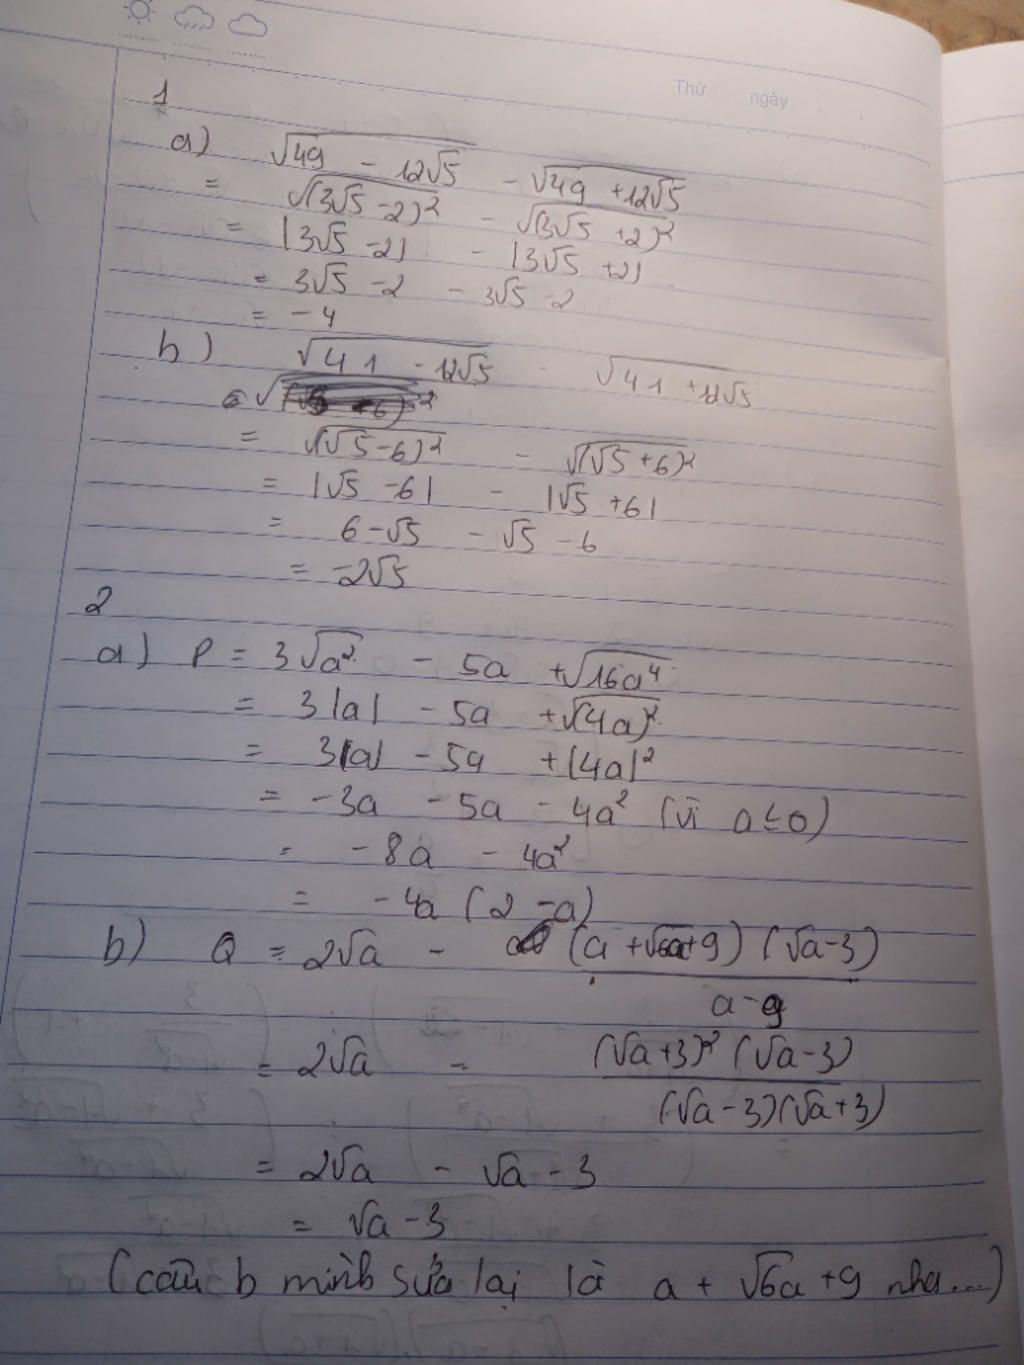 Thứ ngày
1
a) √49 - 12√5 - √49 + 12√5
= √(3√5 - 2)² - √(3√5 + 2)²
= |3√5 - 2| - |3√5 + 2|
= 3√5 - 2 - 3√5 - 2
= - 4
b) √41 - 12√5 - √41 + 12√5
= √(√5 - 6)² - √(√5 + 6)²
= |√5 - 6| - |√5 + 6|
= 6 - √5 - √5 - 6
= -2√5
2
a) P = 3√a² - 5a + √16a⁴
= 3|a| - 5a + √(4a)²
= 3|a| - 5a + |4a|²
= - 3a - 5a - 4a² (vì a ≤ 0)
= - 8a - 4a²
= - 4a (2 - a)
b) Q = 2√a - (a + √6a + 9) (√a - 3)
a - 9
= 2√a - (√a + 3)² (√a - 3)
(√a - 3)(√a + 3)
= 2√a - √a - 3
= √a - 3
(câu b mình sửa lại là a + √6a + 9 nha...)